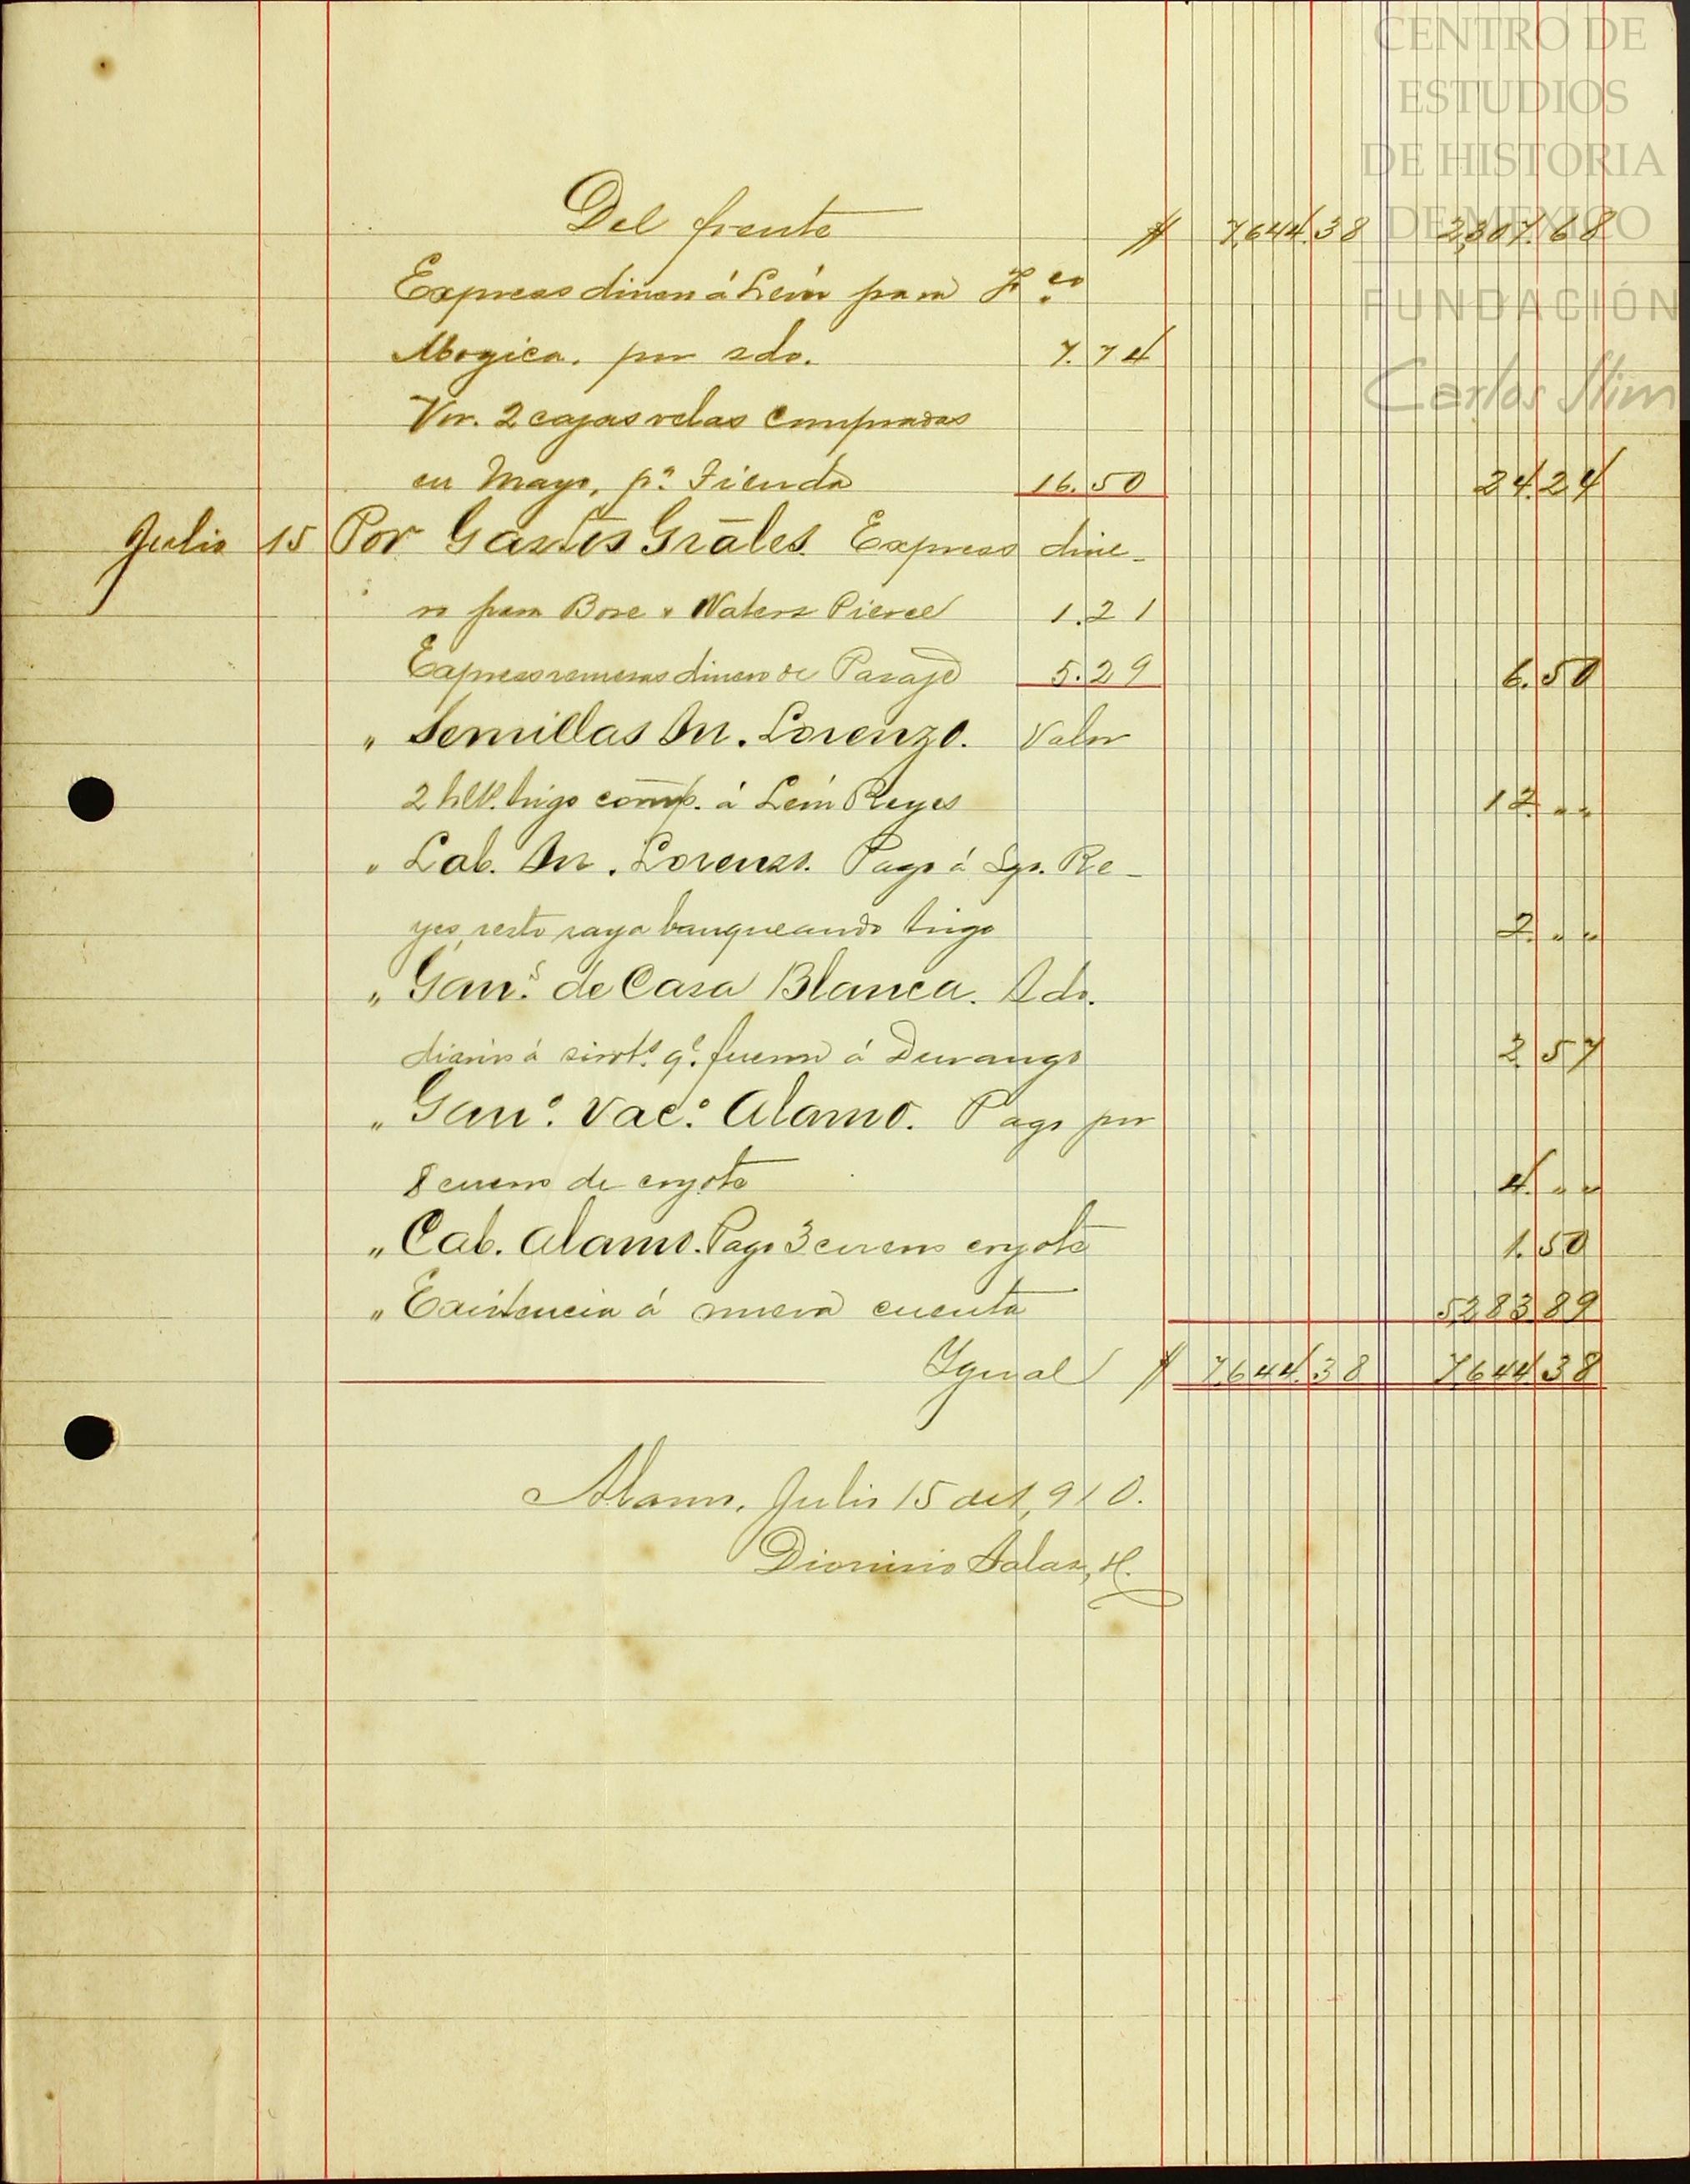 CENTRO DE
ESTUDIOS
DE HISTORIA
DE MEXICO
FUNDACIÓN
Carlos Slim
Del frente $ 7,644.38 2,307.68
Express dinero á León para Fco.
Mogica. por sdo. 7.74
Vor. 2 cajas velas compradas
en Mayo, pa. Tienda 16.50 24.24
Julio 15 Por Gastos Grales. Express dine-
ro para Bose y Waters Pierce 1.21
Express remesas dinero de Pasaje 5.29 6.50
" Semillas Sn. Lorenzo. Valor
2 hlts. trigo comp. á León Reyes 12. " "
" Lab. Sn. Lorenzo. Pago á Sgo. Re-
yes, resto raya banqueando trigo 2. " "
" Gans. de Casa Blanca. Sdo.
diario á sirvts. qe. fueron á Durango 2.57
" Gano. Vaco. Alamo. Pago por
8 cueros de coyote 4. " "
" Cab. Alamo. Pago 3 cueros coyote 1.50
" Existencia á nueva cuenta 5,283.89
Ygual $ 7,644.38 7,644.38
Alamo, Julio 15 de 1,910.
Dionisio Salas, H.